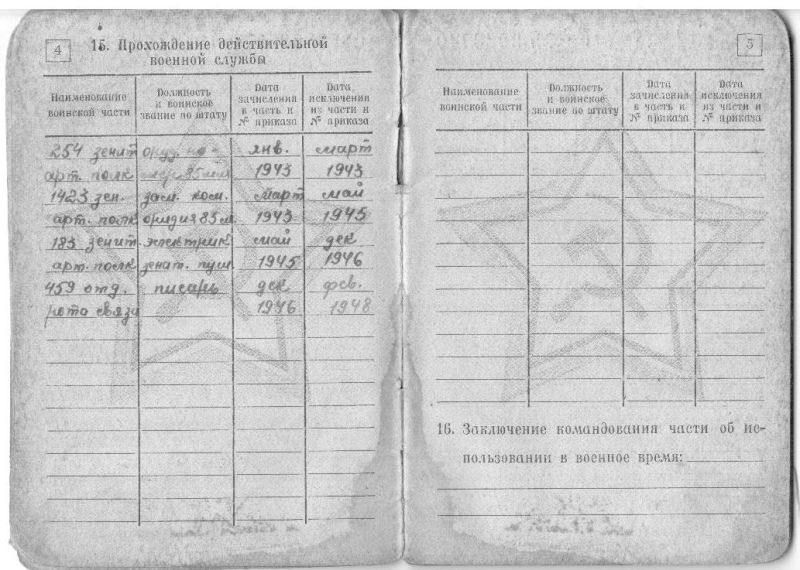 4
15. Прохождение действительной
военной службы
Наименование
воинской части
Должность
и воинское
звание по штату
Дата
зачисления
в часть и
№ приказа
Дата
исключения
из части и
№ приказа
254 зенит янв. март
арт. полк 85мм 1943 1943
1423 зен. зам. ком. март май
арт. полк орудия 85м. 1943 1945
183 зенит. электрик май дек
арт. полк зенит. 1945 1946
459 отд. писарь дек фев.
рота связи 1946 1948
5
Наименование
воинской части
Должность
и воинское
звание по штату
Дата
зачисления
в часть и
№ приказа
Дата
исключения
из части и
№ приказа
16. Заключение командования части об ис-
пользовании в военное время: